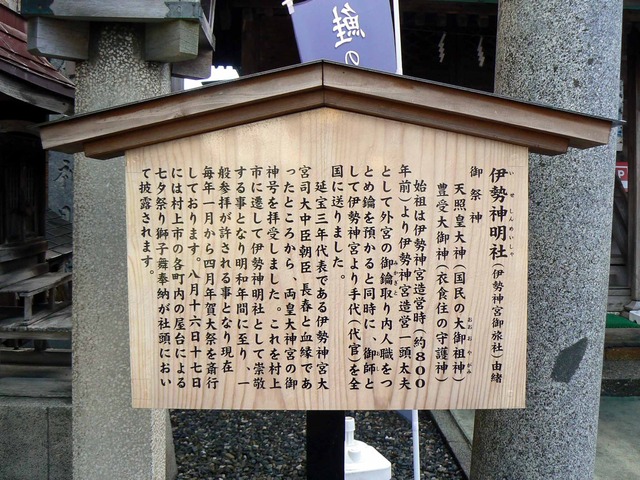 鮭の
伊勢神明社（伊勢神宮御旅社）由緒
いせしんめいしゃ
御祭神
天照皇大神（国民の大御祖神）
おおおやがみ
豊受大御神（衣食住の守護神）
始祖は伊勢神宮造営時（約８００
年前）より伊勢神宮造営一頭太夫
として外宮の御鑰取り内人職をつ
みかぎとり
とめ鑰を預かると同時に、御師と
おし
して伊勢神宮より手代（代官）を全
国に送りました。
延宝三年代表である伊勢神宮大
宮司大中臣朝臣長春と血縁であ
ったところから、両皇大神宮の御
神号を拝受しました。これを村上
市に遷して伊勢神明社として崇敬
する事となり明和年間に至り、一
般参拝が許される事となり現在
毎年一月から四月年賀大祭を斎行
しております。八月十六日十七日
には村上市の各町内の屋台による
七夕祭り獅子舞奉納が社頭におい
て披露されます。